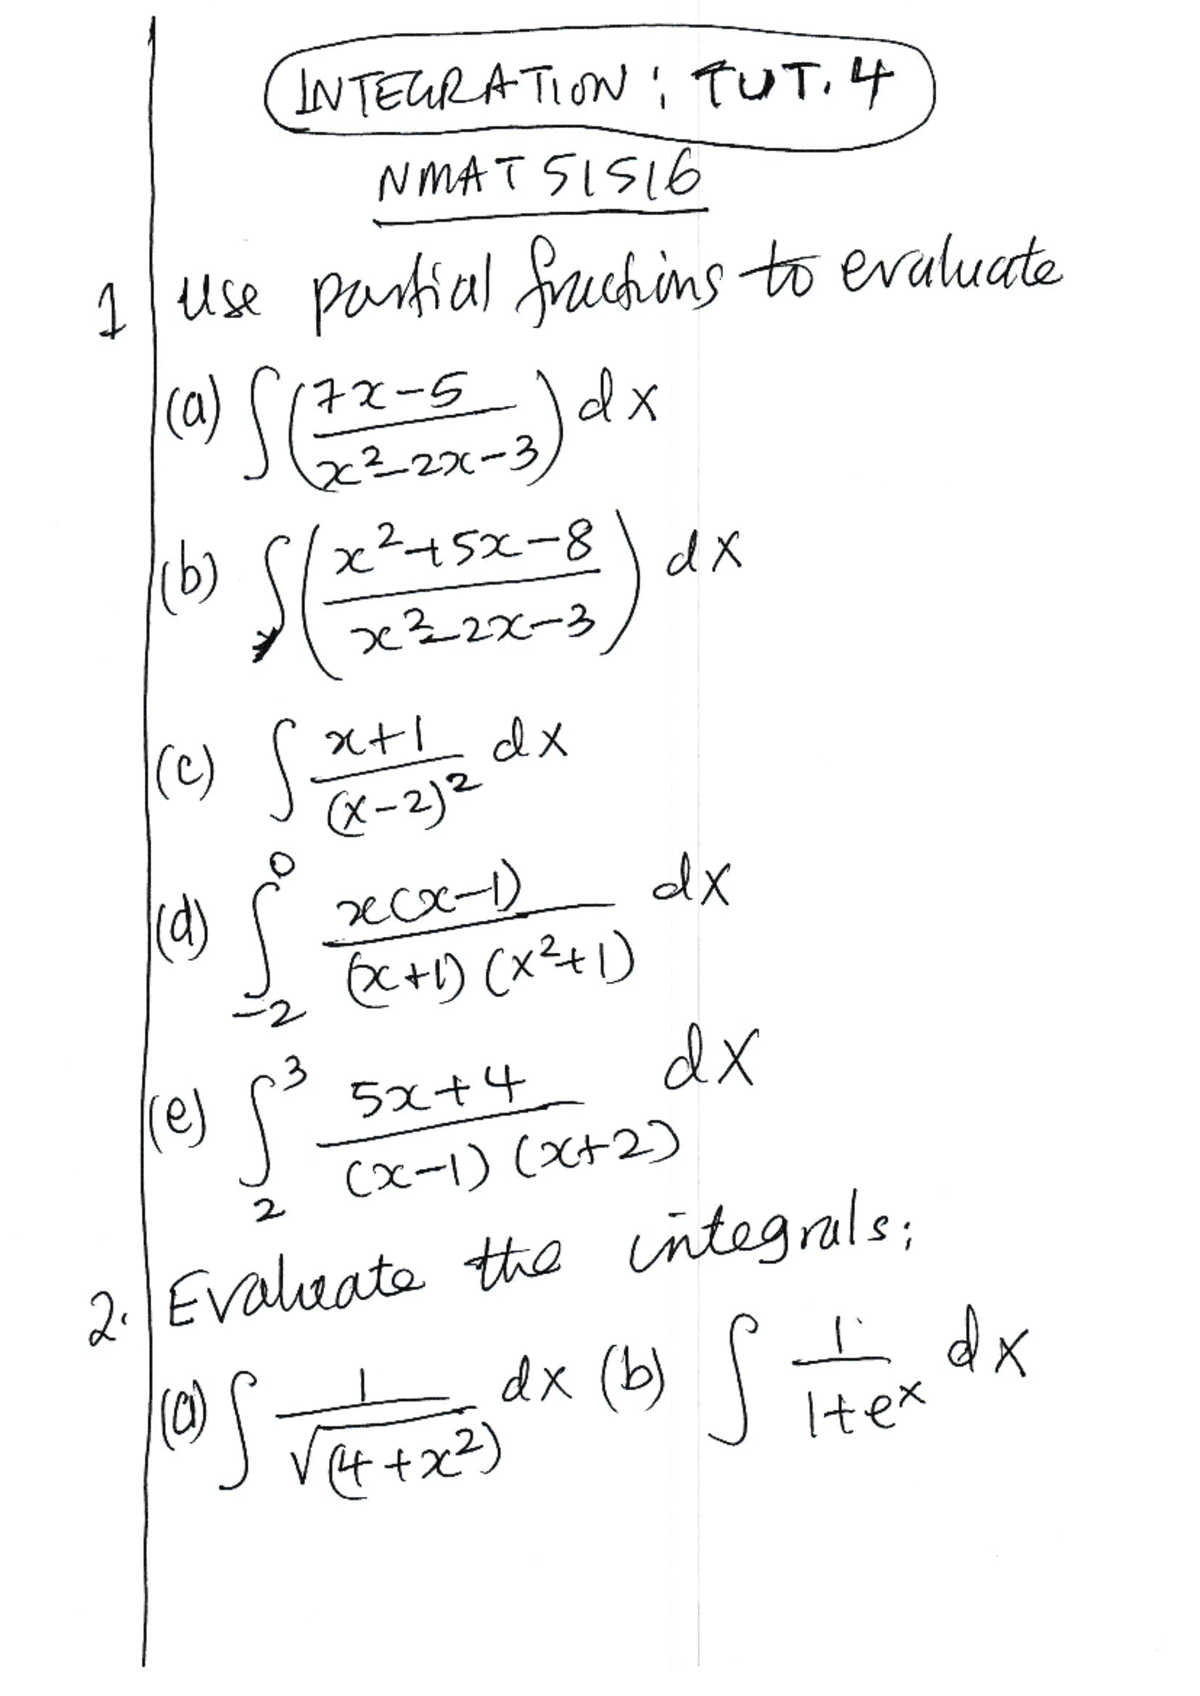 INTEGRATION: TUT. 4
NMAT 51516
1 Use partial fractions to evaluate
(a) ∫ ((7x-5)/(x²-2x-3)) dx
(b) ∫ ((x²+5x-8)/(x²-2x-3)) dx
(c) ∫ (x+1)/(x-2)² dx
(d) ∫₋₂⁰ x(x-1)/((x+1)(x²+1)) dx
(e) ∫₂³ (5x+4)/((x-1)(x+2)) dx
2. Evaluate the integrals;
(a) ∫ 1/√(4+x²) dx (b) ∫ 1/(1+eˣ) dx